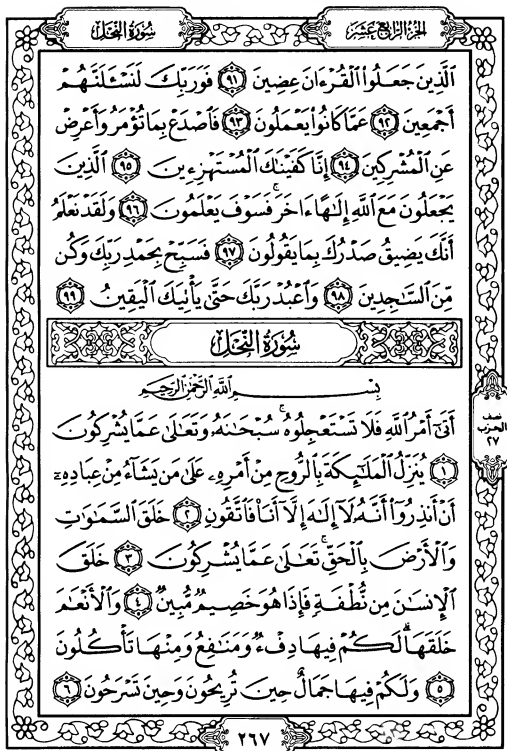 الجزء الرابع عشر
سورة النحل
ٱلَّذِينَ جَعَلُوا۟ ٱلْقُرْءَانَ عِضِينَ ٩١ فَوَرَبِّكَ لَنَسْـَٔلَنَّهُمْ
أَجْمَعِينَ ٩٢ عَمَّا كَانُوا۟ يَعْمَلُونَ ٩٣ فَٱصْدَعْ بِمَا تُؤْمَرُ وَأَعْرِضْ
عَنِ ٱلْمُشْرِكِينَ ٩٤ إِنَّا كَفَيْنَٰكَ ٱلْمُسْتَهْزِءِينَ ٩٥ ٱلَّذِينَ
يَجْعَلُونَ مَعَ ٱللَّهِ إِلَٰهًا ءَاخَرَ ۚ فَسَوْفَ يَعْلَمُونَ ٩٦ وَلَقَدْ نَعْلَمُ
أَنَّكَ يَضِيقُ صَدْرُكَ بِمَا يَقُولُونَ ٩٧ فَسَبِّحْ بِحَمْدِ رَبِّكَ وَكُن
مِّنَ ٱلسَّٰجِدِينَ ٩٨ وَٱعْبُدْ رَبَّكَ حَتَّىٰ يَأْتِيَكَ ٱلْيَقِينُ ٩٩
سورة النحل
بِسْمِ ٱللَّهِ ٱلرَّحْمَٰنِ ٱلرَّحِيمِ
أَتَىٰٓ أَمْرُ ٱللَّهِ فَلَا تَسْتَعْجِلُوهُ ۚ سُبْحَٰنَهُۥ وَتَعَٰلَىٰ عَمَّا يُشْرِكُونَ
١ يُنَزِّلُ ٱلْمَلَٰٓئِكَةَ بِٱلرُّوحِ مِنْ أَمْرِهِۦ عَلَىٰ مَن يَشَآءُ مِنْ عِبَادِهِۦٓ
أَنْ أَنذِرُوٓا۟ أَنَّهُۥ لَآ إِلَٰهَ إِلَّآ أَنَا۠ فَٱتَّقُونِ ٢ خَلَقَ ٱلسَّمَٰوَٰتِ
وَٱلْأَرْضَ بِٱلْحَقِّ ۚ تَعَٰلَىٰ عَمَّا يُشْرِكُونَ ٣ خَلَقَ
ٱلْإِنسَٰنَ مِن نُّطْفَةٍ فَإِذَا هُوَ خَصِيمٌ مُّبِينٌ ٤ وَٱلْأَنْعَٰمَ
خَلَقَهَا ۗ لَكُمْ فِيهَا دِفْءٌ وَمَنَٰفِعُ وَمِنْهَا تَأْكُلُونَ
٥ وَلَكُمْ فِيهَا جَمَالٌ حِينَ تُرِيحُونَ وَحِينَ تَسْرَحُونَ ٦
نصف
الحزب
٢٧
٢٦٧